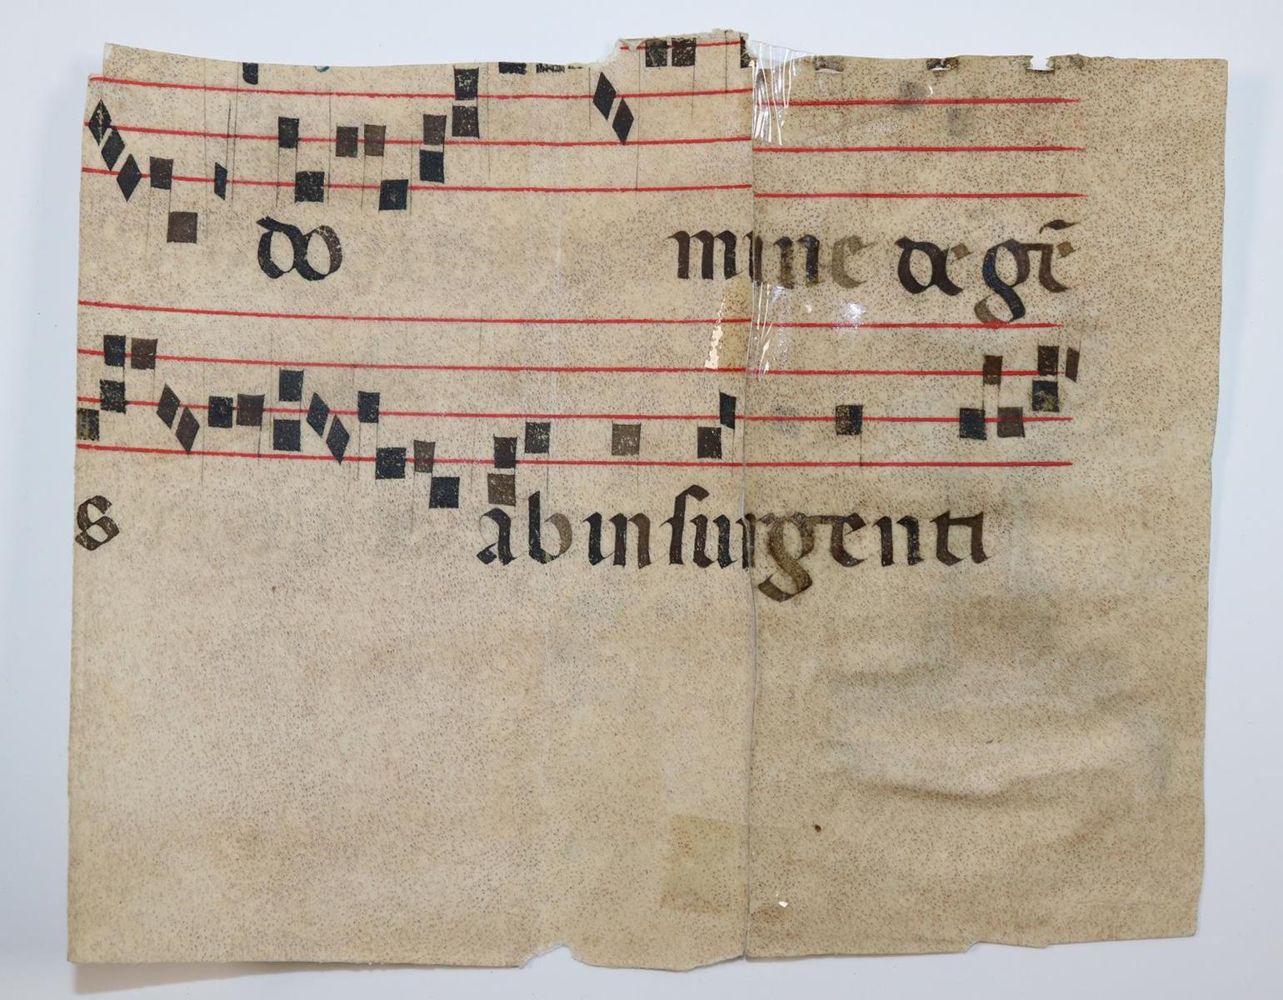 do mine de gē
s ab insurgenti